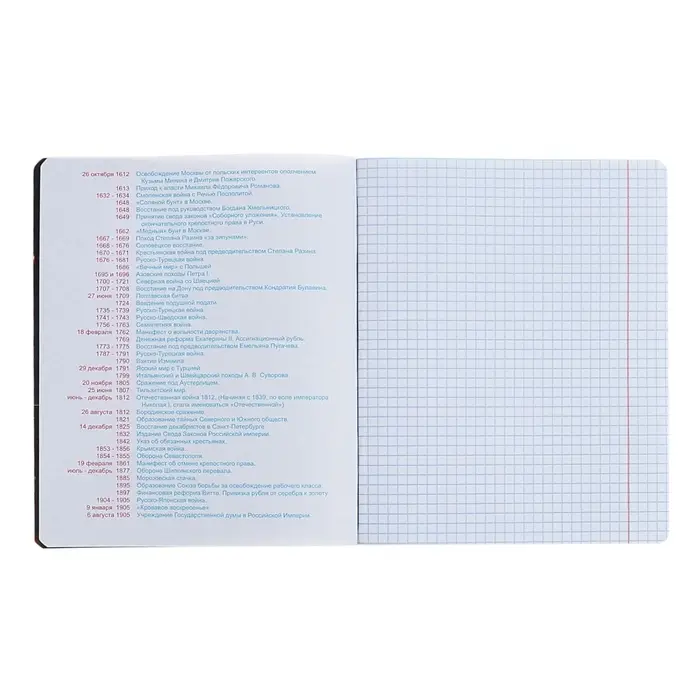 26 октября 1612 Освобождение Москвы от польских интервентов ополчением
Кузьмы Минина и Дмитрия Пожарского.
1613 Приход к власти Михаила Фёдоровича Романова.
1632 - 1634 Смоленская война с Речью Посполитой.
1648 «Соляной бунт» в Москве.
1648 Восстание под руководством Богдана Хмельницкого.
1649 Принятие свода законов «Соборного уложения». Установление
окончательного крепостного права в Руси.
1662 «Медный» бунт в Москве.
1667 - 1669 Поход Степана Разина «за зипунами».
1668 - 1676 Соловецкое восстание.
1670 - 1671 Крестьянская война под предводительством Степана Разина.
1676 - 1681 Русско-Турецкая война.
1686 «Вечный мир» с Польшей
1695 и 1696 Азовские походы Петра I.
1700 - 1721 Северная война со Швецией.
1707 - 1708 Восстание на Дону под предводительством Кондратия Булавина.
27 июня 1709 Полтавская битва.
1724 Введение подушной подати.
1735 - 1739 Русско-Турецкая война.
1741 - 1743 Русско-Шведская война.
1756 - 1763 Семилетняя война.
18 февраля 1762 Манифест о вольности дворянства.
1769 Денежная реформа Екатерины II. Ассигнационный рубль.
1773 - 1775 Восстание под предводительством Емельяна Пугачева.
1787 - 1791 Русско-Турецкая война.
1790 Взятие Измаила.
29 декабря 1791 Ясский мир с Турцией.
1799 Итальянский и Швейцарский походы А. В. Суворова.
20 ноября 1805 Сражение под Аустерлицем.
25 июня 1807 Тильзитский мир.
июнь - декабрь 1812 Отечественная война 1812, (Начиная с 1839, по воле императора
Николая I, стала именоваться «Отечественной»)
26 августа 1812 Бородинское сражение.
1821 Образование тайных Северного и Южного обществ.
14 декабря 1825 Восстание декабристов в Санкт-Петербурге.
1832 Издание Свода Законов Российской империи.
1842 Указ об обязанных крестьянах.
1853 - 1856 Крымская война.
1854 - 1855 Оборона Севастополя.
19 февраля 1861 Манифест об отмене крепостного права.
июль - декабрь 1877 Оборона Шипкинского перевала.
1885 Морозовская стачка.
1895 Образование Союза борьбы за освобождение рабочего класса.
1897 Финансовая реформа Витте. Привязка рубля от серебра к золоту.
1904 - 1905 Русско-Японская война.
9 января 1905 «Кровавое воскресенье».
6 августа 1905 Учреждение Государственной думы в Российской Империи.